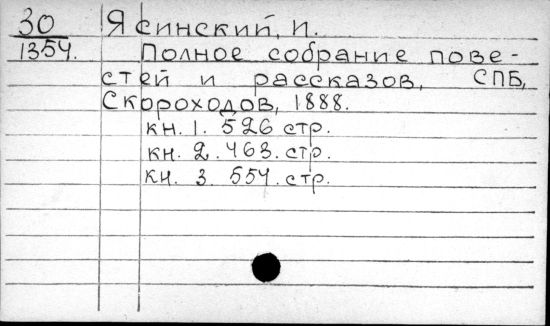 30 Ясинский, И.
1354. Полное собрание пове-
стей и рассказов, СПБ,
Скороходов, 1888.
кн. 1. 526 стр.
кн. 2. 463. стр.
кн. 3. 554. стр.